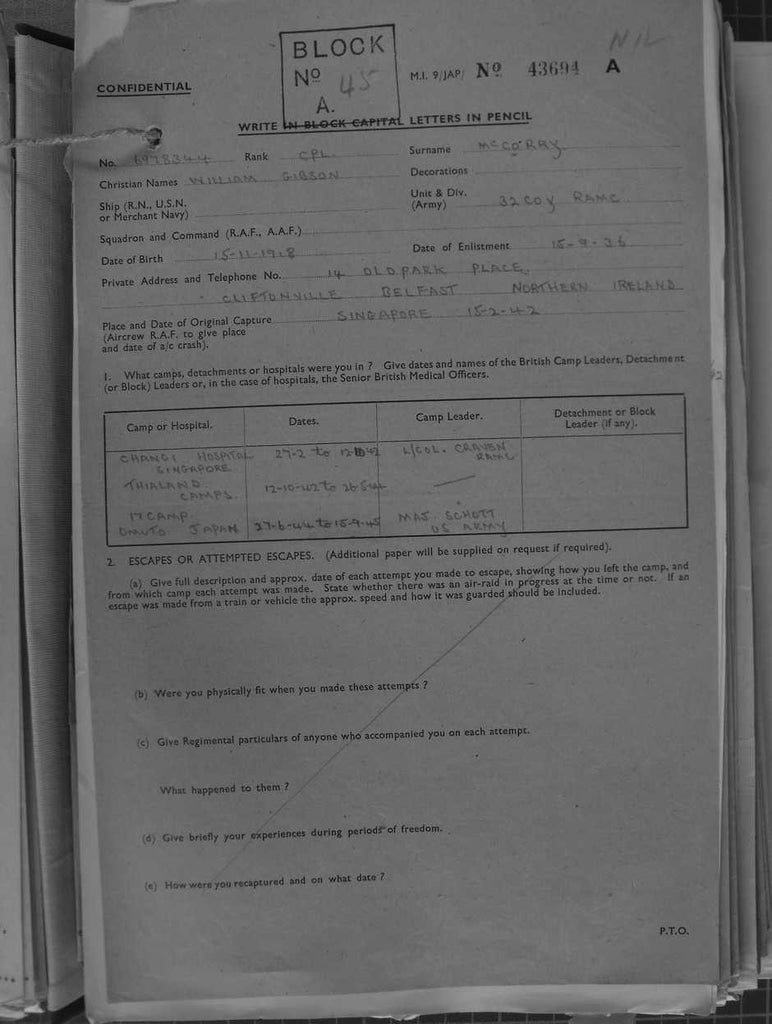 NIL
BLOCK
Nº 45
A.
CONFIDENTIAL
M.I. 9/JAP/ Nº 43694 A
WRITE IN BLOCK CAPITAL LETTERS IN PENCIL
No. 6978344 Rank CPL. Surname McCORRY
Christian Names WILLIAM GIBSON Decorations
Ship (R.N., U.S.N. or Merchant Navy) Unit & Div. (Army) 32 COY RAMC
Squadron and Command (R.A.F., A.A.F.)
Date of Birth 15-11-1918 Date of Enlistment 15-9-36
Private Address and Telephone No. 14 OLDPARK PLACE,
CLIFTONVILLE BELFAST NORTHERN IRELAND
Place and Date of Original Capture SINGAPORE 15-2-42
(Aircrew R.A.F. to give place
and date of a/c crash).
1. What camps, detachments or hospitals were you in ? Give dates and names of the British Camp Leaders, Detachment
(or Block) Leaders or, in the case of hospitals, the Senior British Medical Officers.
Camp or Hospital. Dates. Camp Leader. Detachment or Block Leader (if any).
CHANGI HOSPITAL 27-2 to L/COL. CRAVEN
SINGAPORE RAMC
THIALAND CAMPS. 12-10-42 to 26-5-44
17 CAMP. MAJ. SCHOTT
OMUTO. JAPAN 27-6-44 to 15-9-45 US ARMY
2. ESCAPES OR ATTEMPTED ESCAPES. (Additional paper will be supplied on request if required).
(a) Give full description and approx. date of each attempt you made to escape, showing how you left the camp, and
from which camp each attempt was made. State whether there was an air-raid in progress at the time or not. If an
escape was made from a train or vehicle the approx. speed and how it was guarded should be included.
(b) Were you physically fit when you made these attempts ?
(c) Give Regimental particulars of anyone who accompanied you on each attempt.
What happened to them ?
(d) Give briefly your experiences during periods of freedom.
(e) How were you recaptured and on what date ?
P.T.O.